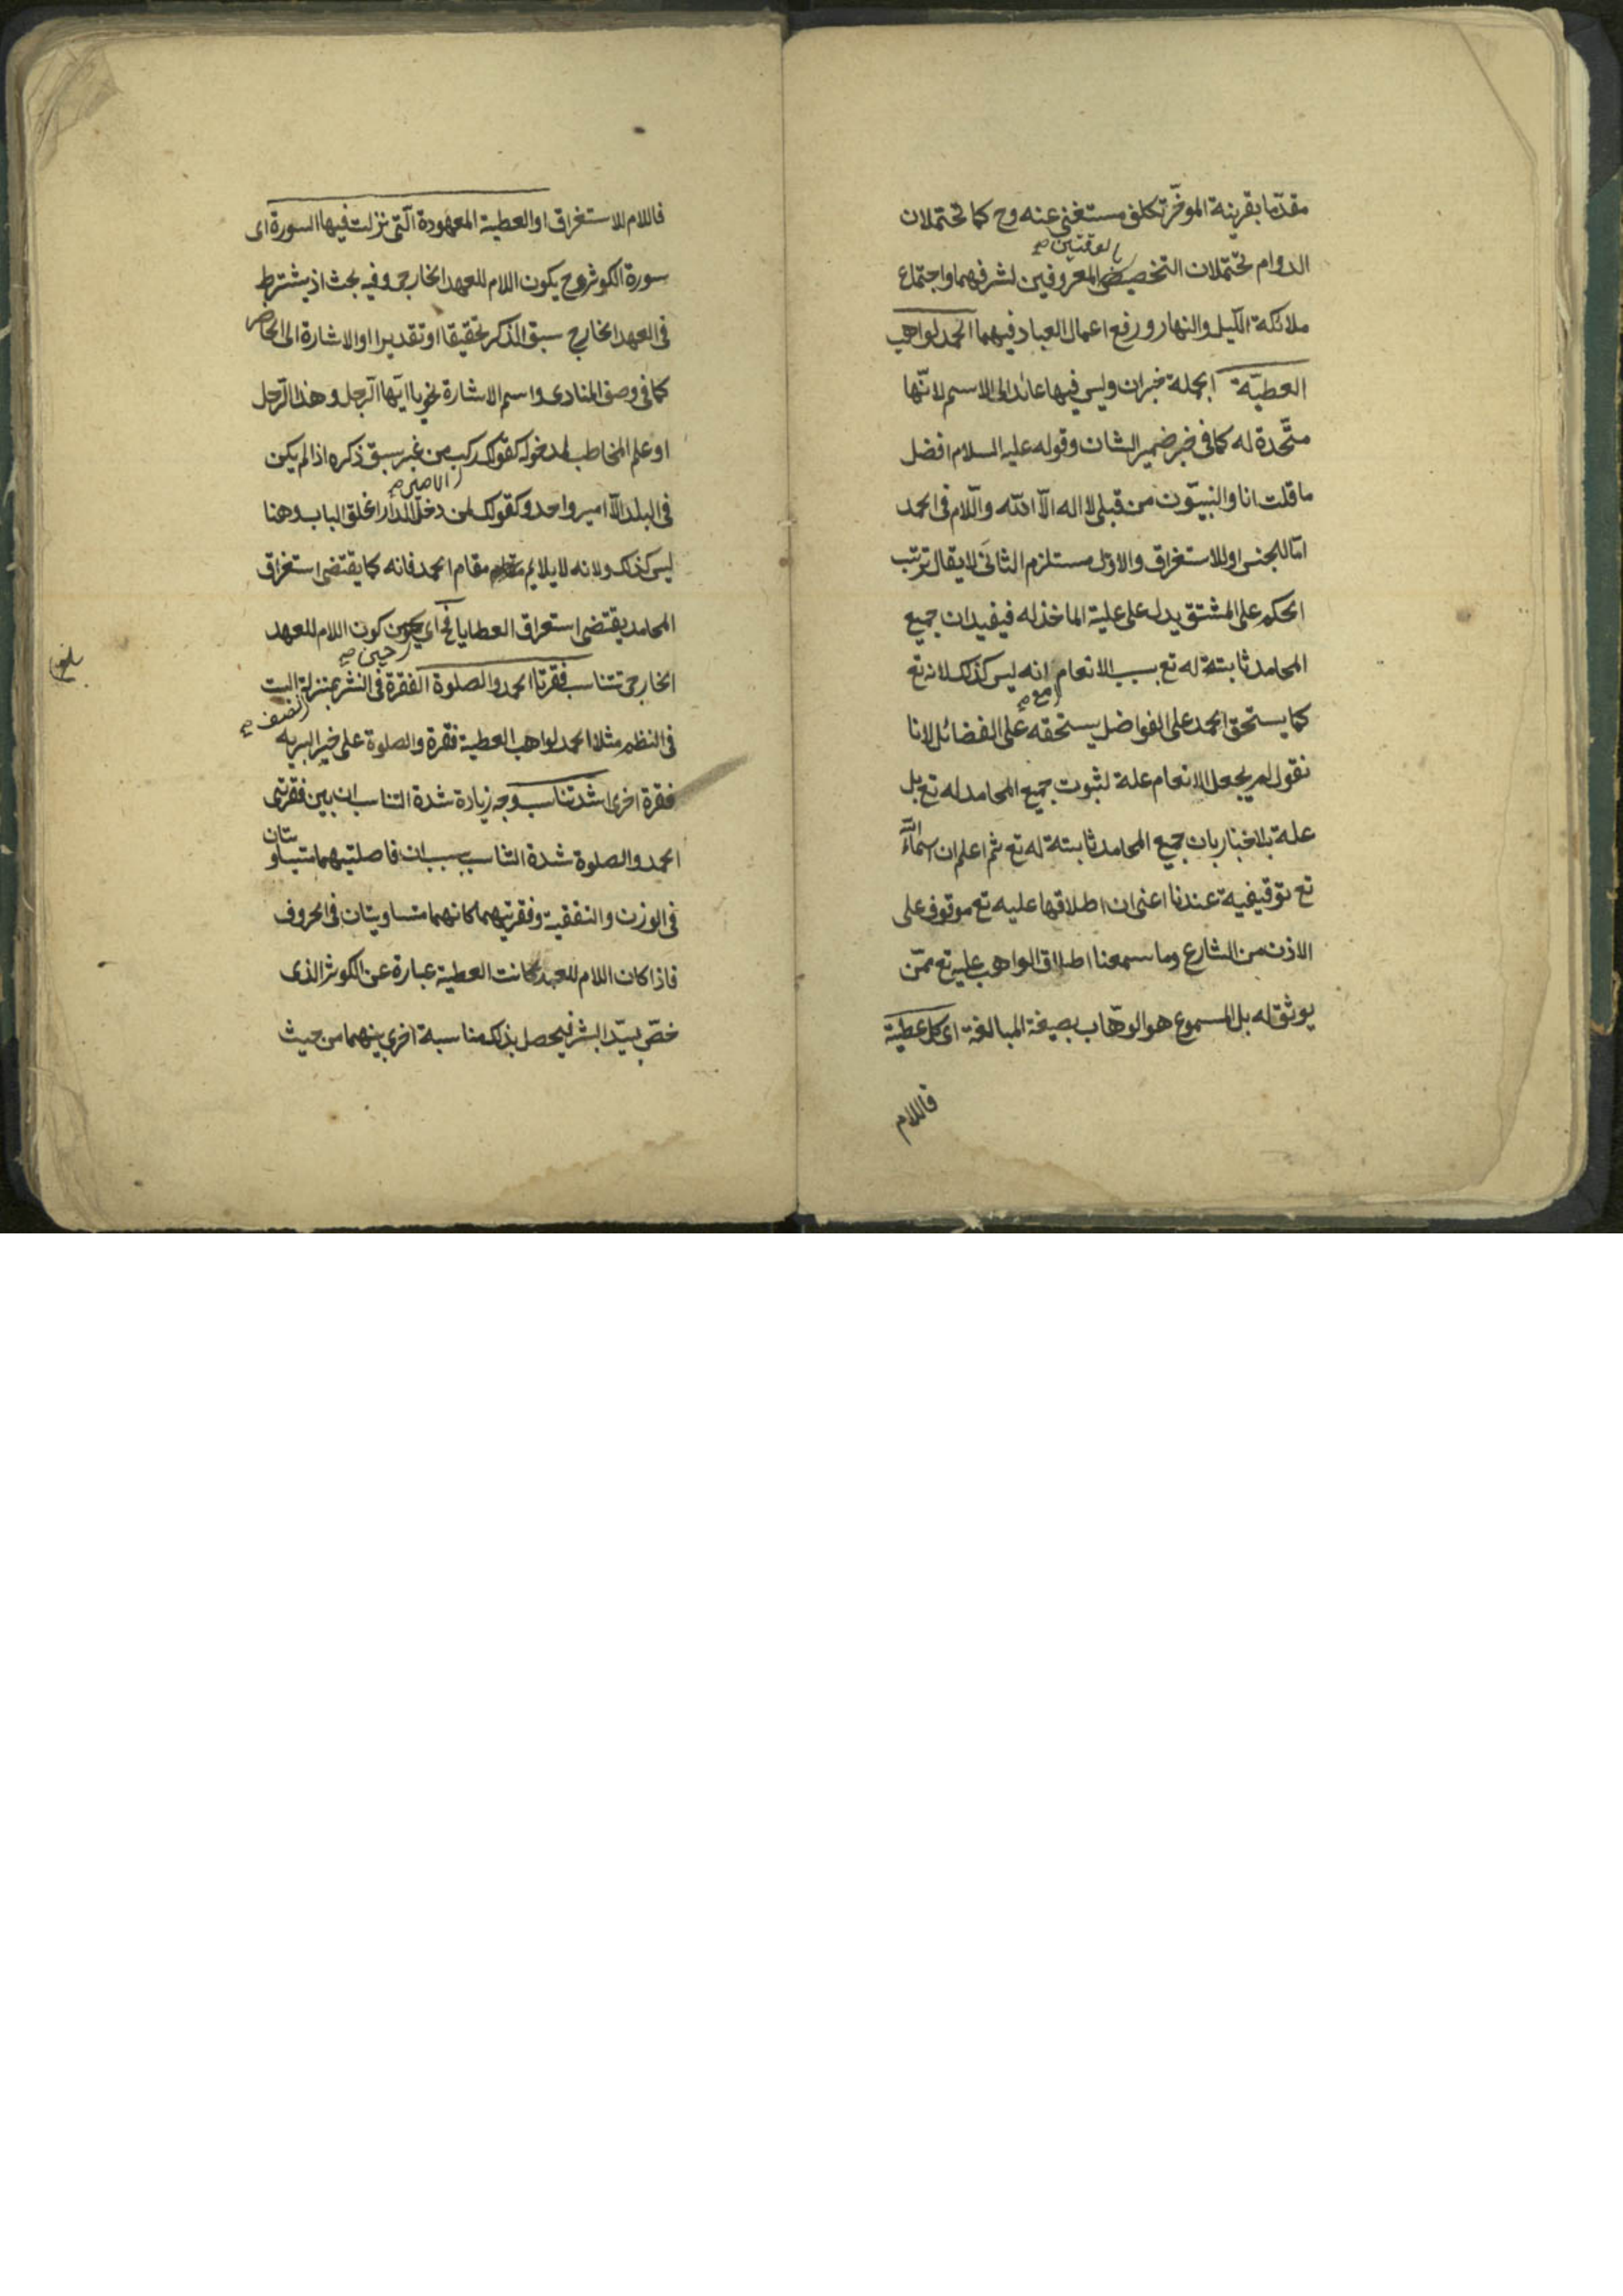 مقدّما بقرينة الموخّر تكلف مستغنى عنه وح كما تحتملان
بالوقتين صح
الدوام تحتملان التخصيص المعروفين لشرفهما واجتماع
ملائكة الليل والنهار ورفع اعمال العباد فيهما الحمد لواهب
العطيّة الجملة خبران وليس فيها عائد الى الاسم لانّها
متّحدة له كما فى خبر ضمير الشان وقوله عليه السلام افضل
ما قلت انا والنبيّون من قبلى لا اله الّا الله واللّام فى الحمد
امّا للجنس او للاستغراق والاوّل مستلزم الثانى لا يقال ترتب
الحكم على المشتق يدل على علية الماخذ له فيفيد ان جميع
المحامد ثابتة له تع بسبب الانعام انه ليس كذلك لانه تع
مع صح
كما يستحق الحمد على الفواضل يستحقه على الفضائل لانا
نقول لم يجعل الانعام علة لثبوت جميع المحامد له تع بل
علة بالاخبار بان جميع المحامد ثابتة له تع ثم اعلم ان اسماء الله
تع توقيفية عندنا اعنى ان اطلاقها عليه تع موقوف على
الاذن من الشارع وما سمعنا اطلاق الواهب عليه تع ممّن
يوثق له بل المسموع هو الوهّاب بصيغة المبالغة اى كل عطيّة
فاللام
فاللام للاستغراق او العطية المعهودة الّتى نزلت فيها السورة اى
سورة الكوثر وح يكون اللام للعهد الخارجى وفيه بحث اذ يشترط
فى العهد الخارجى سبق الذكر تحقيقا او تقديرا او الاشارة الى الحاضر
كما فى وصف المنادى واسم الاشارة نحو يا ايّها الرّجل وهذا الرّجل
او علم المخاطب لمدخوله كقولك ركب من غير سبق ذكره اذا لم يكن
الامير صح
فى البلد الّا امير واحد وكقولك لمن دخل الدار اغلق الباب وهنا
ليس كذلك ولانه لا يلايم مقام الحمد فانه كما يقتضى استغراق
المحامد يقتضى استغراق العطايا فح اى كون اللام للعهد
حين صح
الخارجى تتناسب فقرتا الحمد والصلوة الفقرة فى النثر بمنزلة البيت
النصف صح
فى النظم مثلا الحمد لواهب العطية فقرة والصلوة على خير البريه
فقرة اخرى اشد تناسب وجه زيادة شدة التناسب ان بين فقرتى
الحمد والصلوة شدة التناسب بسبب ان فاصلتيهما متساويتان
فى الوزن والتقفية وفقرتيهما كانهما متساويتان فى الحروف
فاذا كان اللام للعهد كانت العطية عبارة عن الكوثر الذى
خصّ بسيّد البشر فيحصل بذلك مناسبة اخرى بينهما من حيث